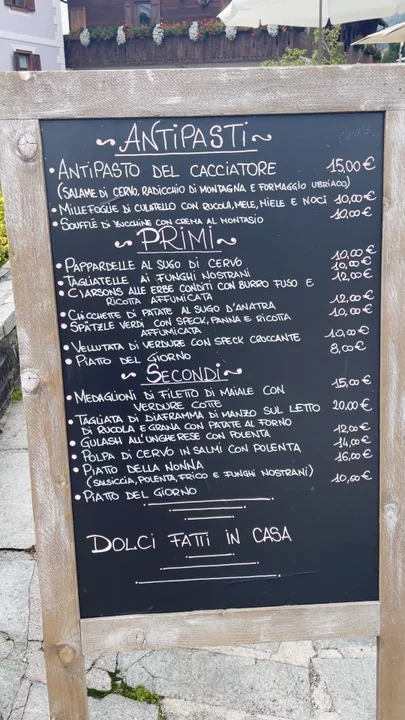 ~ANTIPASTI~
• ANTIPASTO DEL CACCIATORE 15,00 €
(SALAME DI CERVO, RADICCHIO DI MONTAGNA E FORMAGGIO UBRIACO)
• MILLEFOGLIE DI CULATELLO CON RUCOLA, MELE, MIELE E NOCI 10,00 €
• SOUFFLÈ DI ZUCCHINE CON CREMA AL MONTASIO 10,00 €
~PRIMI~
• PAPPARDELLE AL SUGO DI CERVO 10,00 €
• TAGLIATELLE AI FUNGHI NOSTRANI 10,00 €
• CJARSONS ALLE ERBE CONDITI CON BURRO FUSO E 12,00 €
RICOTTA AFFUMICATA
• CHICCHETTE DI PATATE AL SUGO D'ANATRA 12,00 €
• SPÄTZLE VERDI CON SPECK, PANNA E RICOTTA 10,00 €
AFFUMICATA
• VELLUTATA DI VERDURE CON SPECK CROCCANTE 10,00 €
• PIATTO DEL GIORNO 8,00 €
~SECONDI~
• MEDAGLIONI DI FILETTO DI MAIALE CON 15,00 €
VERDURE COTTE
• TAGLIATA DI DIAFRAMMA DI MANZO SUL LETTO 20,00 €
DI RUCOLA E GRANA CON PATATE AL FORNO
• GULASH ALL'UNGHERESE CON POLENTA 12,00 €
• POLPA DI CERVO IN SALMI CON POLENTA 14,00 €
• PIATTO DELLA NONNA 16,00 €
(SALSICCIA, POLENTA, FRICO E FUNGHI NOSTRANI)
• PIATTO DEL GIORNO 10,00 €
DOLCI FATTI IN CASA